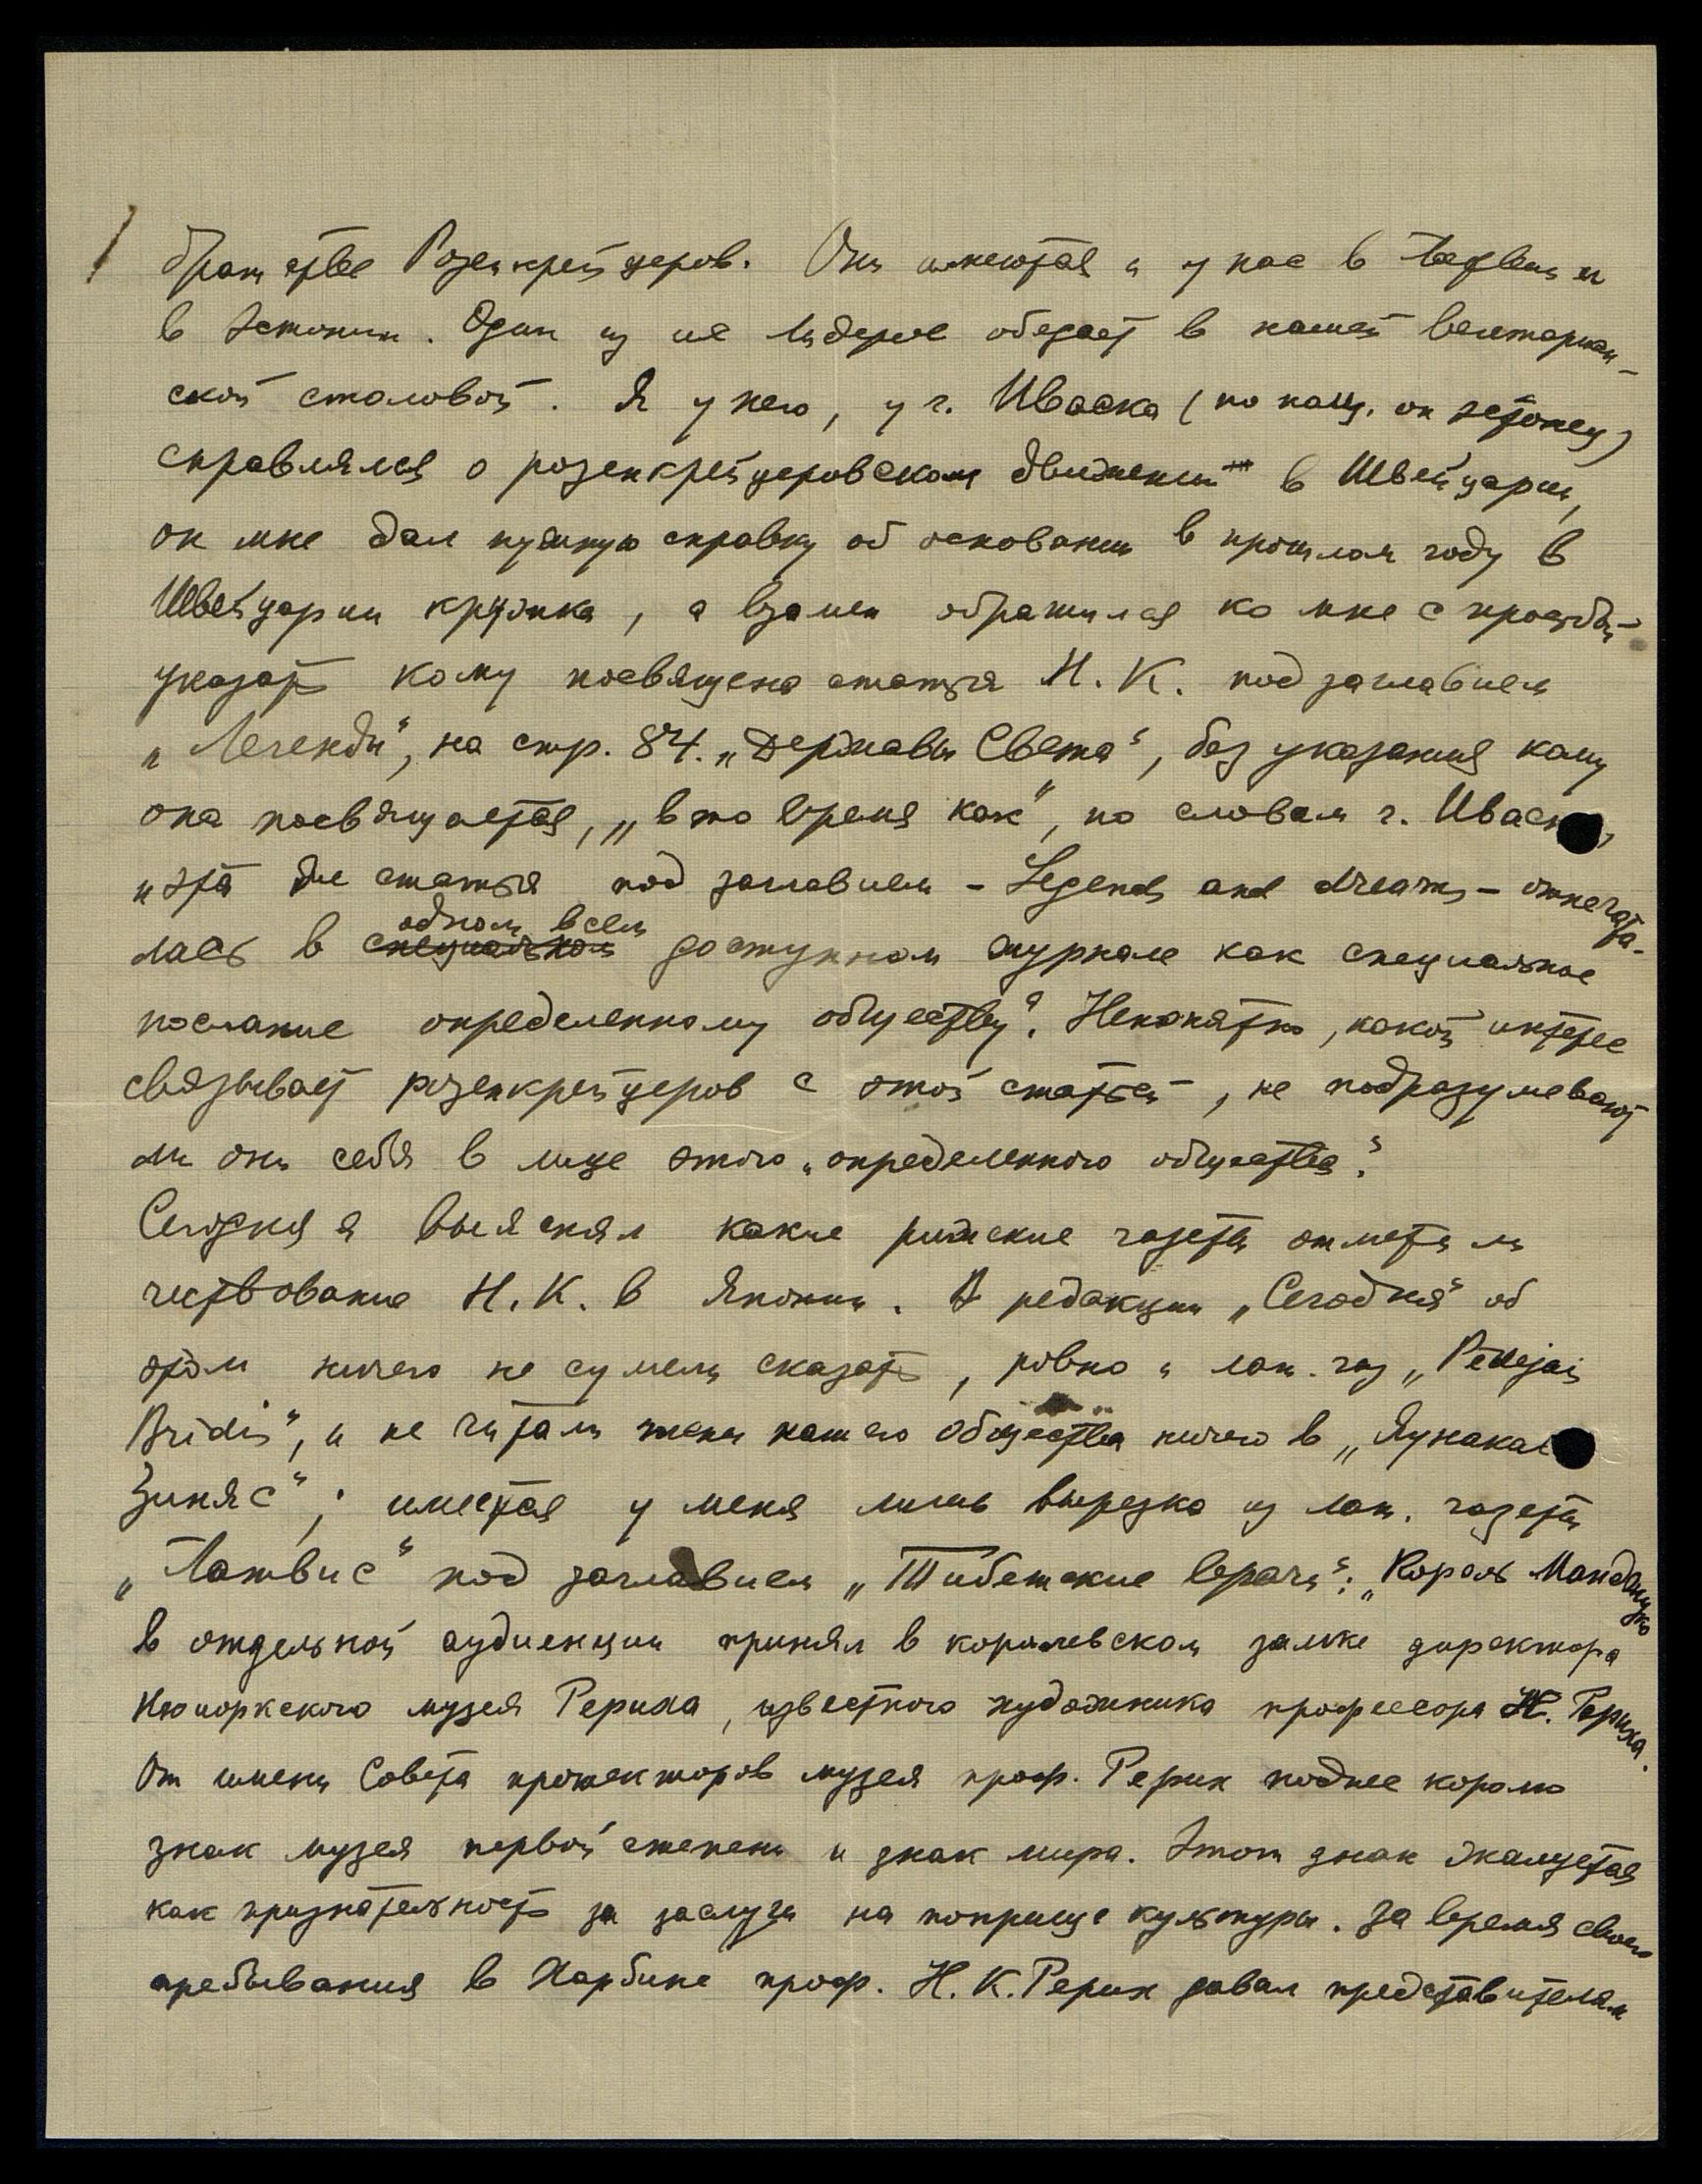 братстве Розенкрейцеров. Они имеются и у нас в Латвии и
в Эстонии. Один из их лидеров обедает в нашей вегетариан-
ской столовой. Я у него, у г. Иваска (по нац. он эстонец)
справлялся о розенкрейцеровском движении в Швейцарии,
он мне дал нужную справку об основании в прошлом году в
Швейцарии кружка, а взамен обратился ко мне с просьбой
указать кому посвящена статья Н. К. под заглавием
„Легенды", на стр. 84. „Державы Света", без указания кому
она посвящается, „в то время как", по словам г. Иваска,
„эта же статья под заглавием - Legends and dreams - отпечата-
лась в специальном одном всем доступном журнале как специальное
послание определенному обществу". Непонятно, какой интерес
связывает розенкрейцеров с этой статьей, не подразумевают
ли они себя в лице этого „определенного общества".
Сегодня я выяснял какие рижские газеты отметили
чествование Н. К. в Японии. В редакции „Сегодня" об
этом ничего не сумели сказать, ровно и лат. газ „Pēdejai
Bridis", и не читали члены нашего Общества ничего в „Яунакас
Зиняс"; имеется у меня лишь вырезка из лат. газеты
„Латвис" под заглавием „Тибетские врачи": „Король Манджуко
в отдельной аудиенции принял в королевском замке директора
Нюиоркского музея Рериха, известного художника профессора Н. Рериха.
От имени Совета протекторов музея проф. Рерих поднес королю
знак музея первой степени и знак мира. Этот знак жалуется
как признательность за заслуги на поприще культуры. За время своего
пребывания в Харбине проф. Н. К. Рерих давал представителям